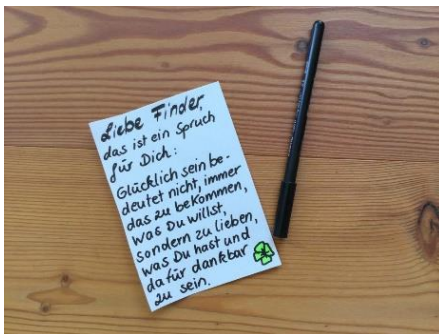 Liebe Finder,
das ist ein Spruch
für Dich:
Glücklich sein be-
deutet nicht, immer
das zu bekommen,
was Du willst,
sondern zu lieben,
was Du hast und
dafür dankbar
zu sein.